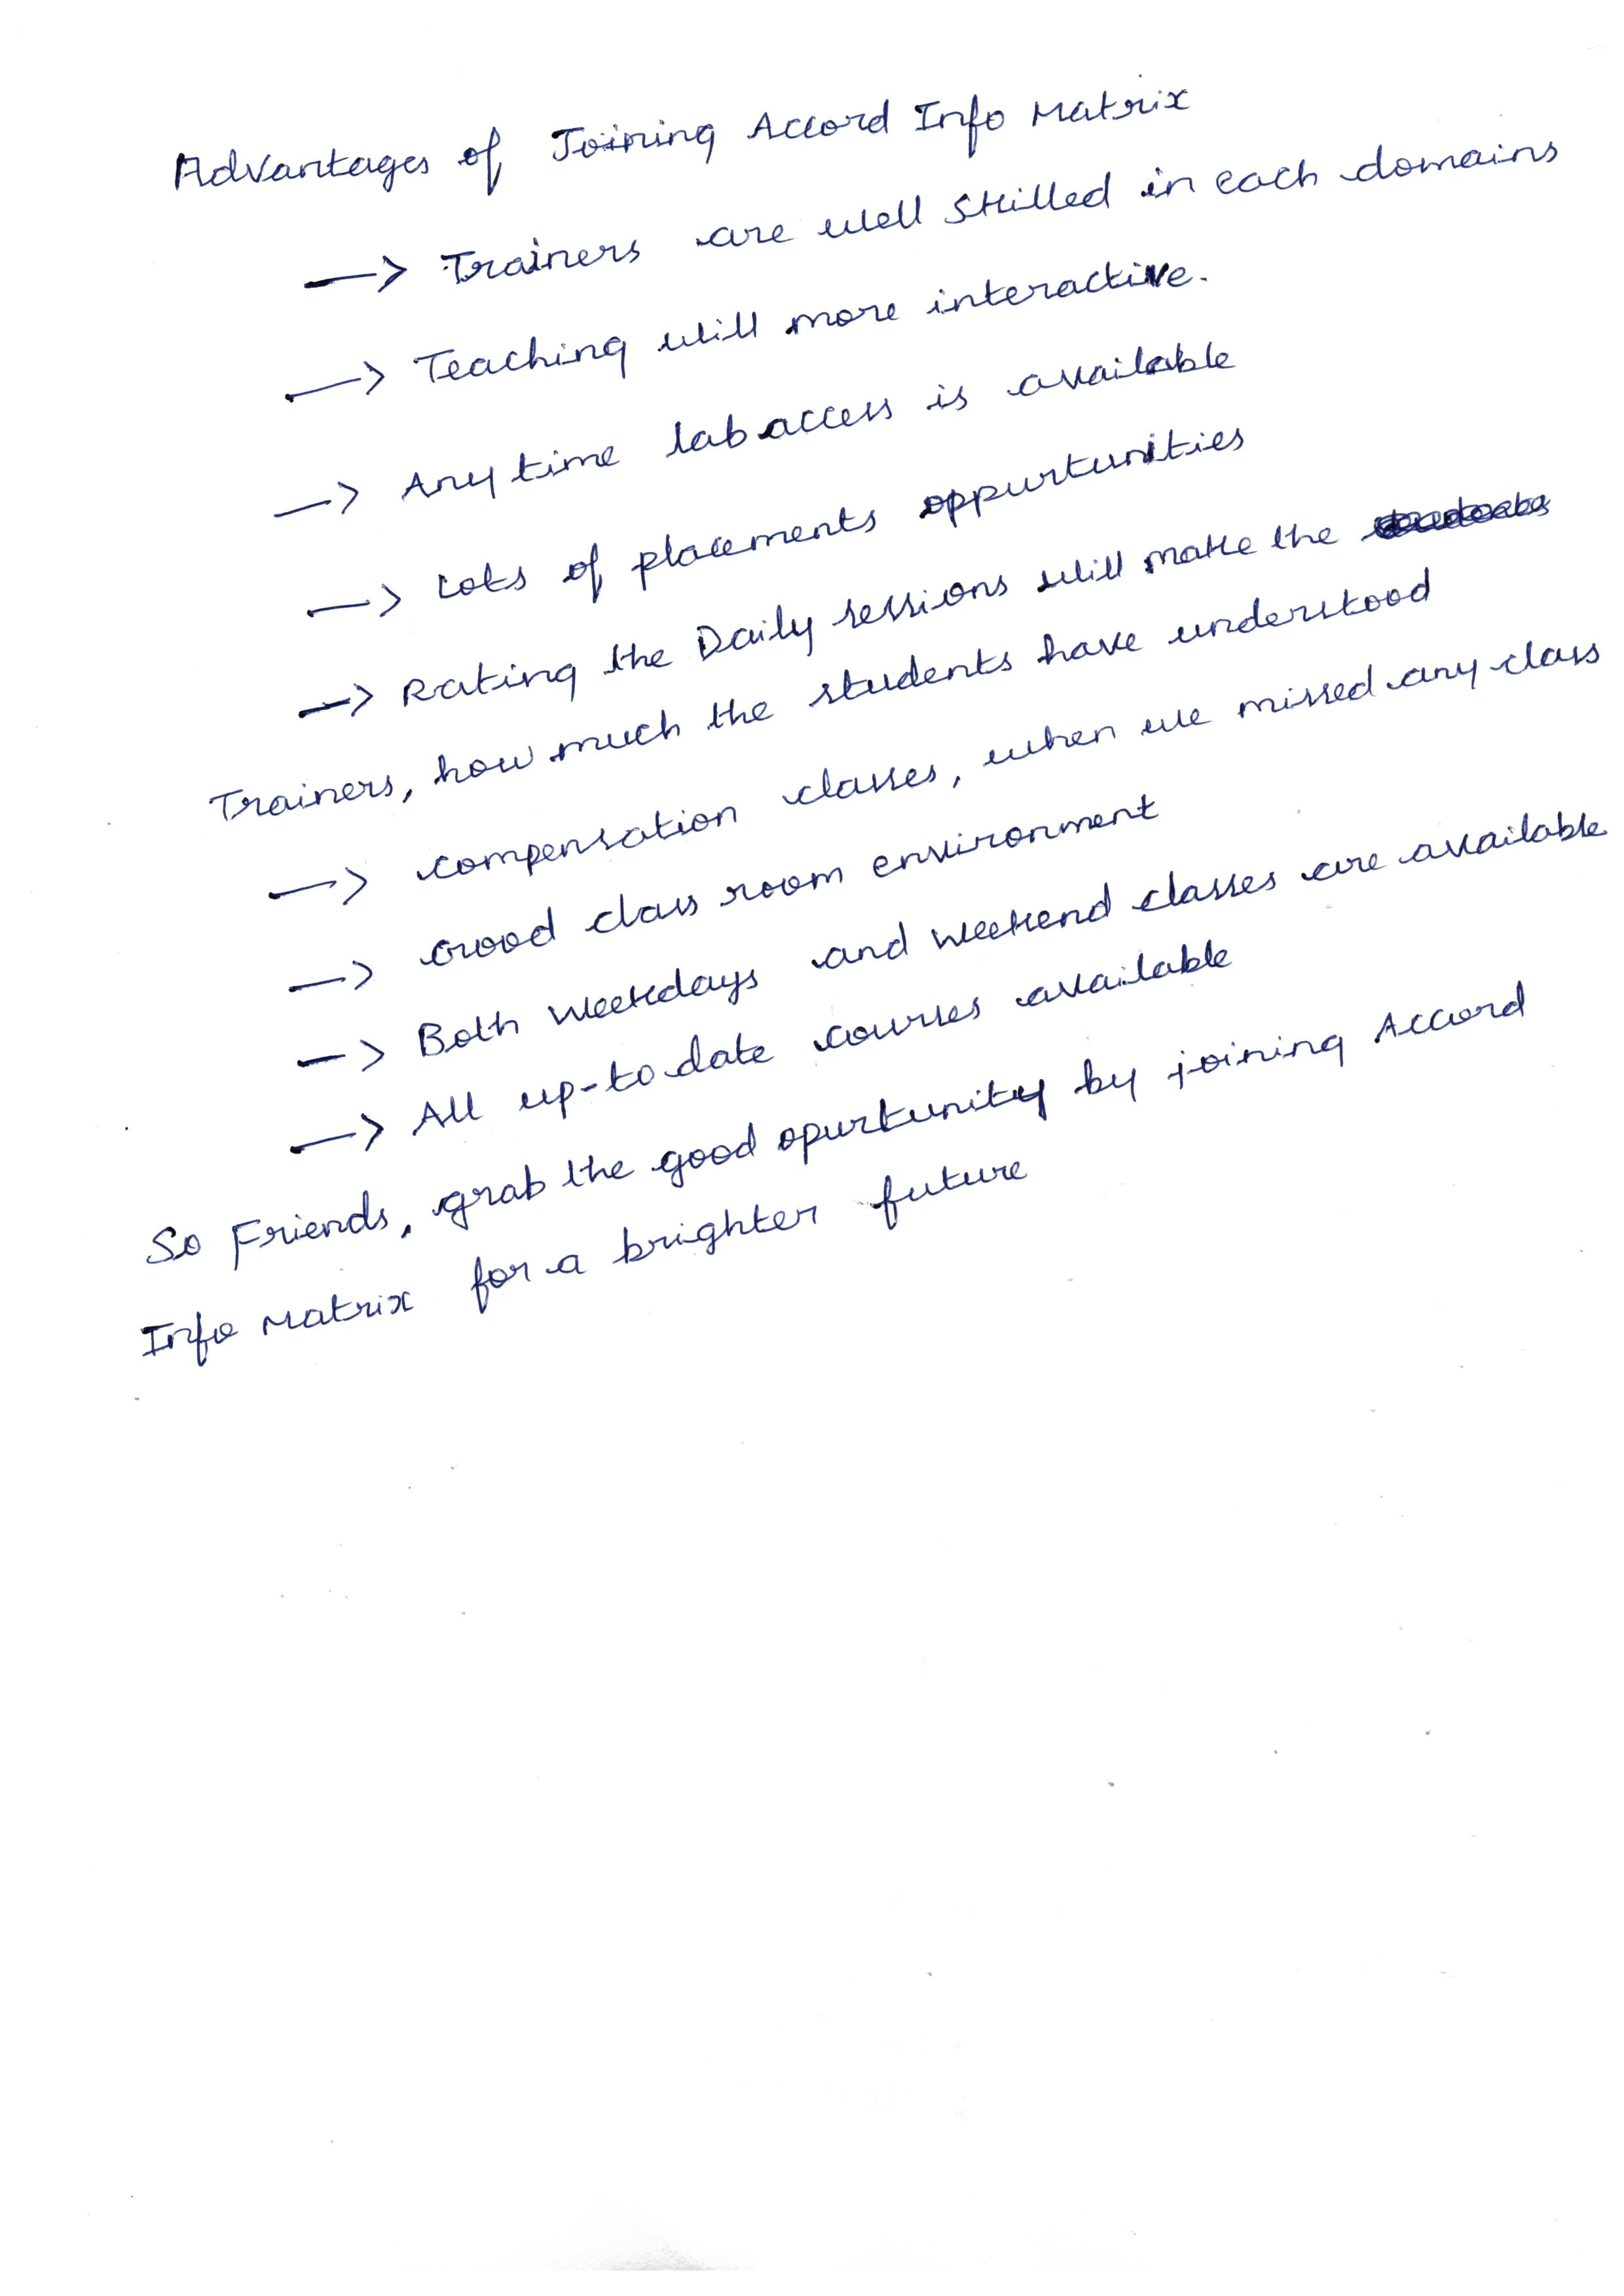 Advantages of Joining Accord Info Matrix
—> Trainers are well skilled in each domains
—> Teaching will more interactive.
—> Any time lab access is available
—> Lots of placements oppurtunities
—> Rating the Daily sessions will make the
Trainers, how much the students have understood
—> compensation classes, when we missed any class
—> Good class room environment
—> Both weekdays and weekend classes are available
—> All up-to date courses available
So Friends, grab the good opurtunity by joining Accord
Info Matrix for a brighter future